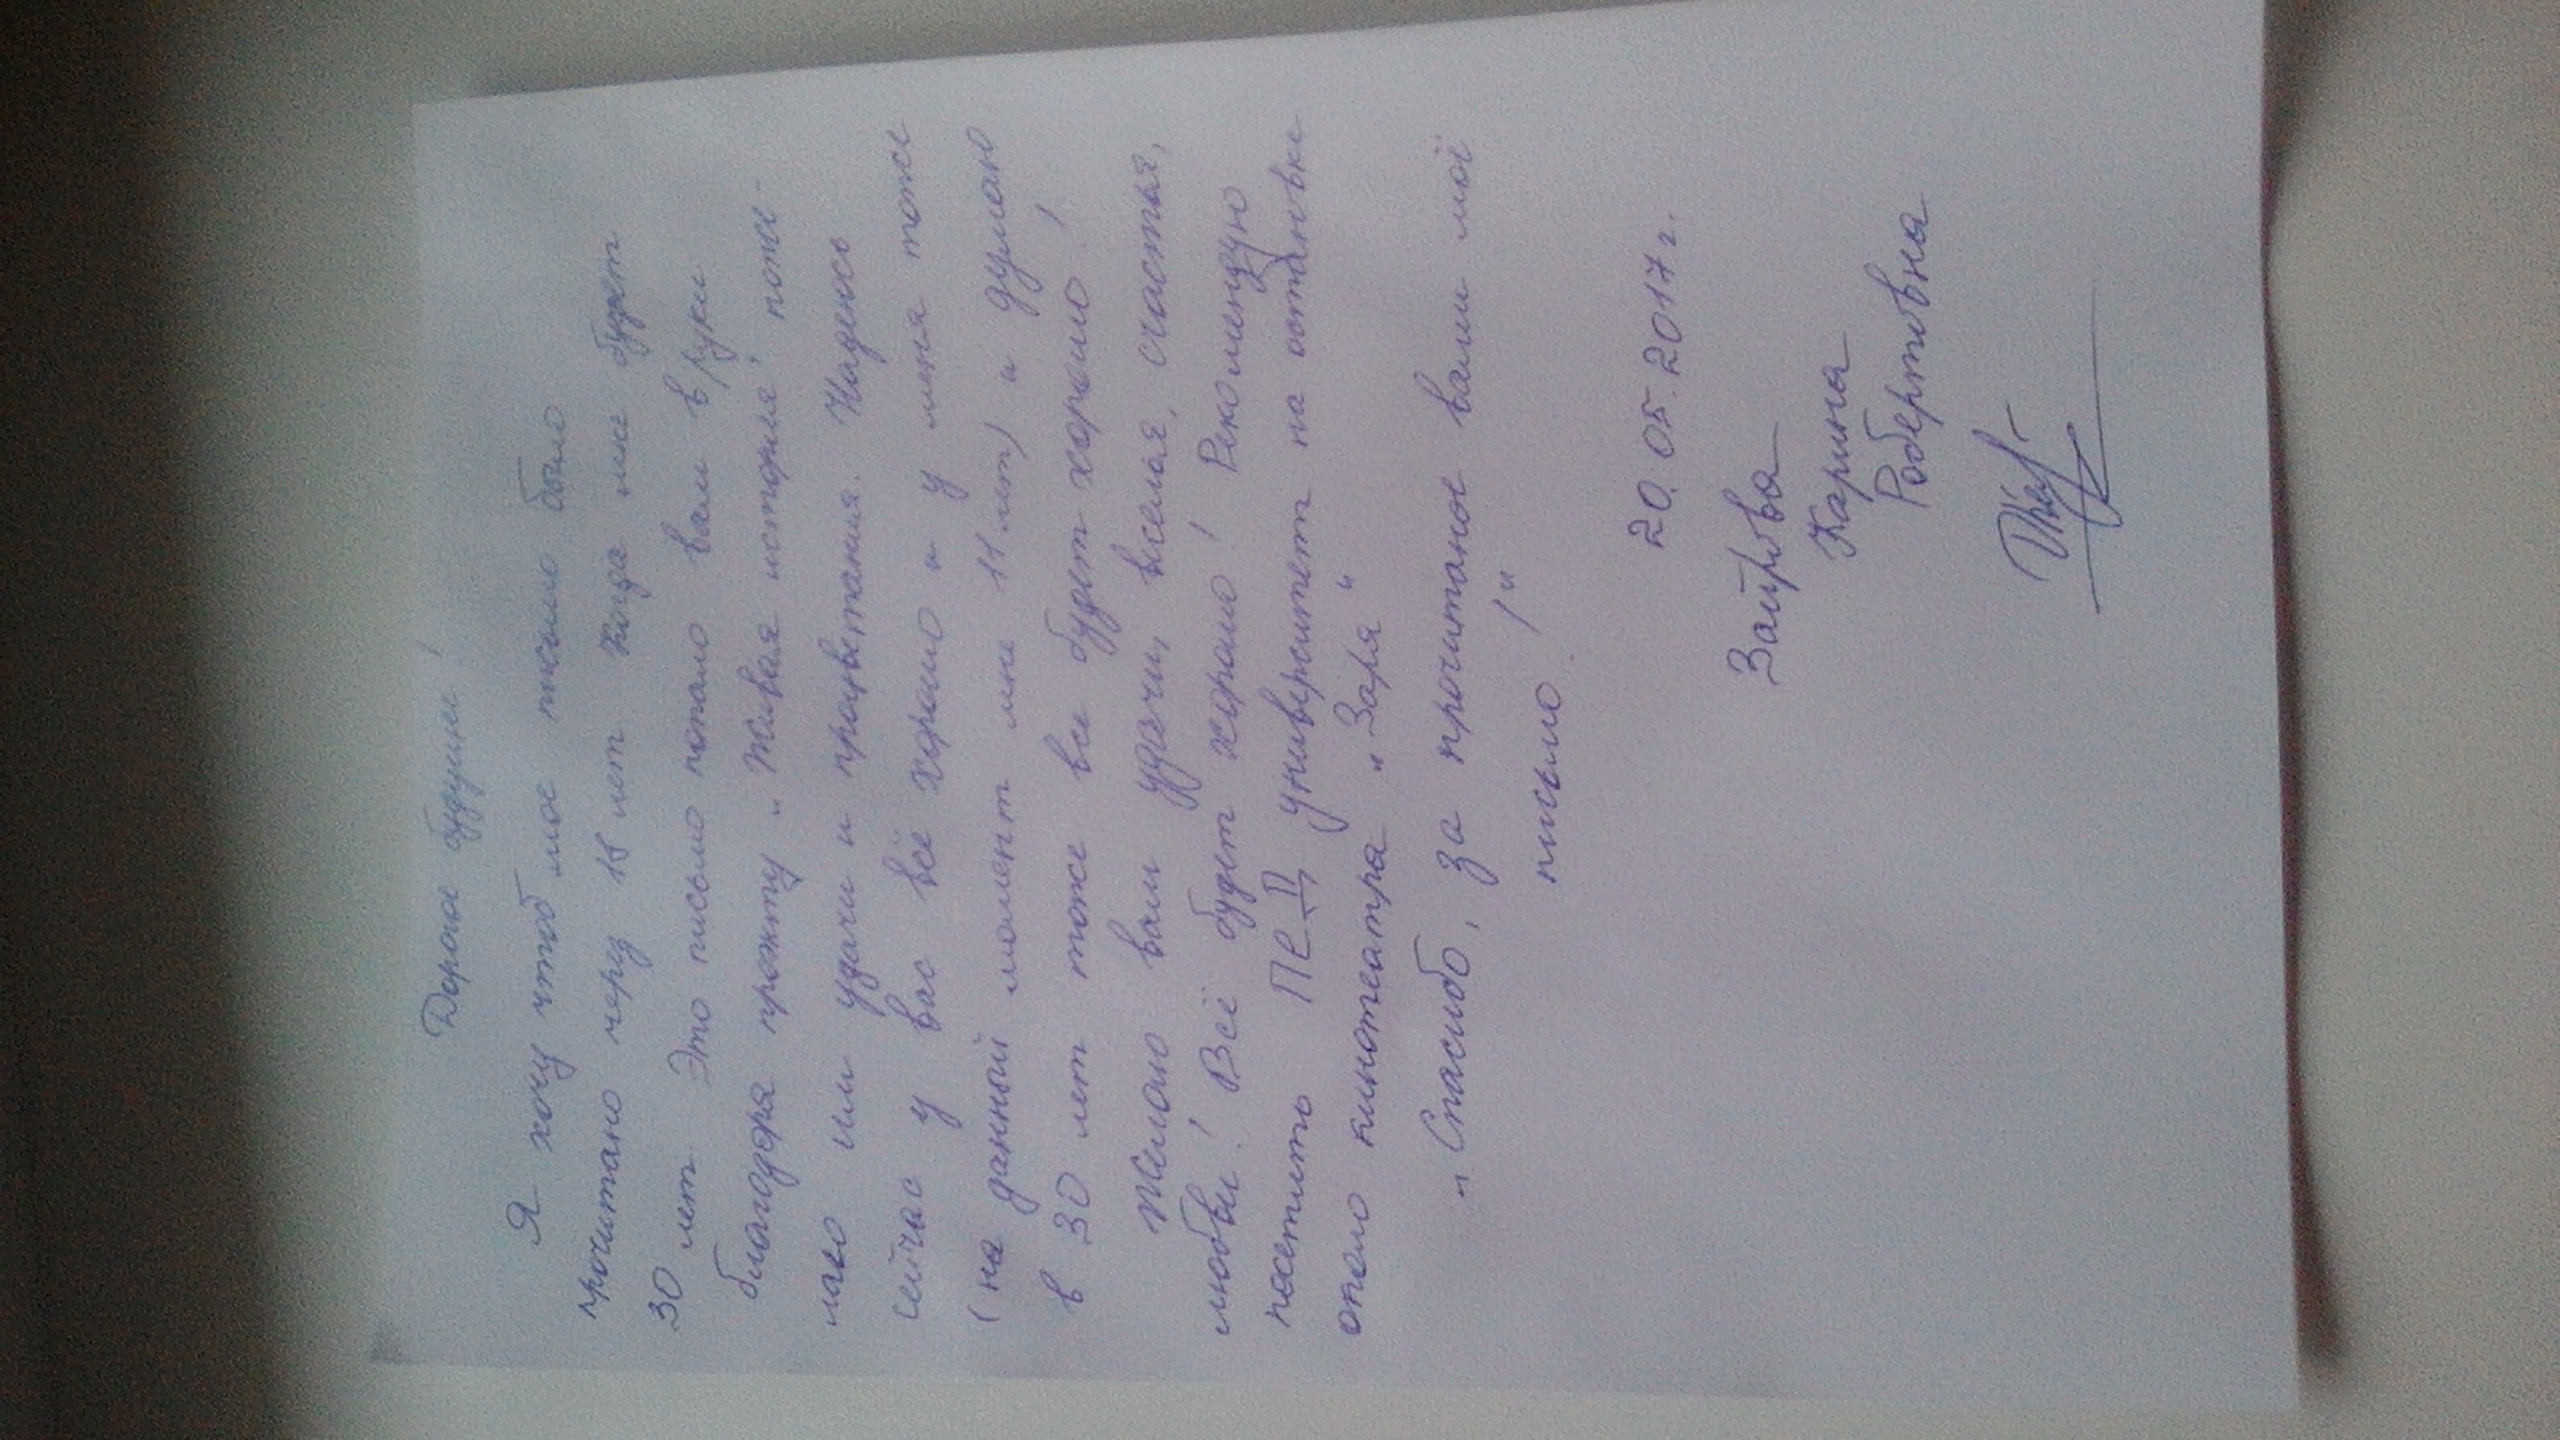 Дорогие будущие!
Я хочу чтоб мое письмо было
прочитано через 15 лет когда мне будет
30 лет. Это письмо попало вам в руки
благодоря проекту „Живая история" поже-
лаю им удачи и процветания. Надеюсь
сейчас у вас всё хорошо и у меня тоже
(на данный момент мне 11 лет) и думаю
в 30 лет тоже все будет хорошо!
Желаю вам удачи, веселья, счастья,
любви! Всё будет хорошо! Рекомендую
посетить ПЕД университет на остановке
около кинотеатра „Заря"
„Спасибо, за прочитаное вами моё
письмо!"
20.05.2017г.
Заирова
Карина
Робертовна